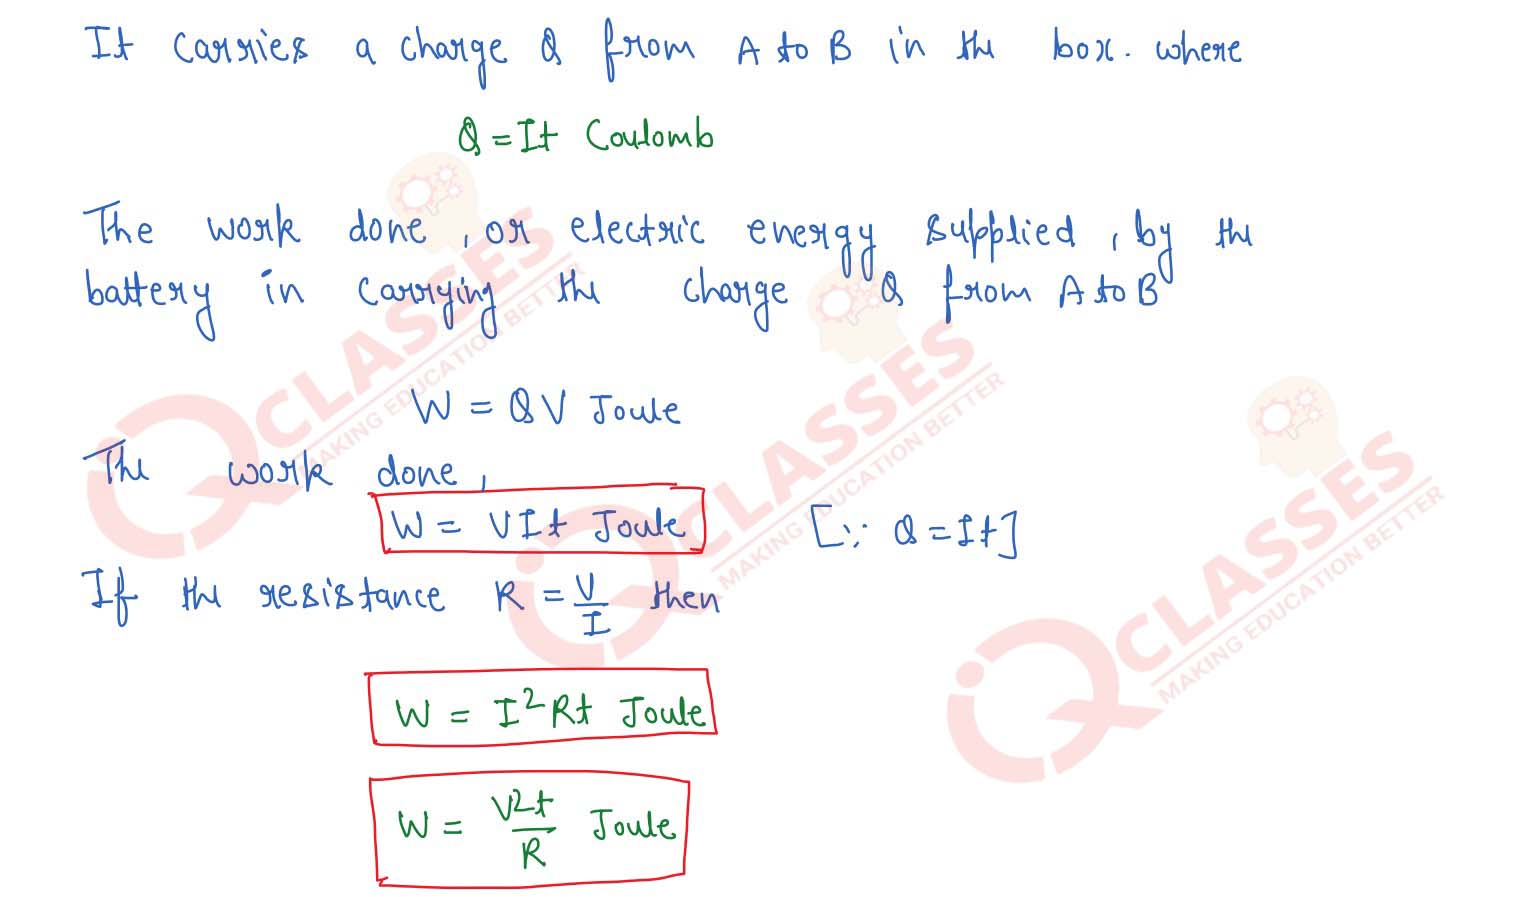 It carries a charge Q from A to B in the box. where
Q = It Coulomb
The work done, or electric energy supplied, by the
battery in carrying the charge Q from A to B
W = QV Joule
The work done,
W = VIt Joule [∵ Q = It]
If the resistance R = V/I then
W = I²Rt Joule
W = V²t/R Joule
IQ CLASSES
MAKING EDUCATION BETTER
IQ CLASSES
MAKING EDUCATION BETTER
IQ CLASSES
MAKING EDUCATION BETTER